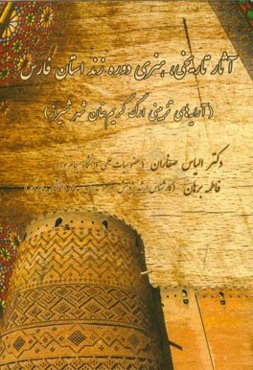 آثار تاریخی، هنری دوره زند استان فارس
(آرایه‌های تزئینی ارگ کریم‌خان شهر شیراز)
دکتر الیاس صفاران (عضو هیات علمی دانشگاه پیام نور)
فاطمه برهان (کارشناس ارشد پژوهش هنر